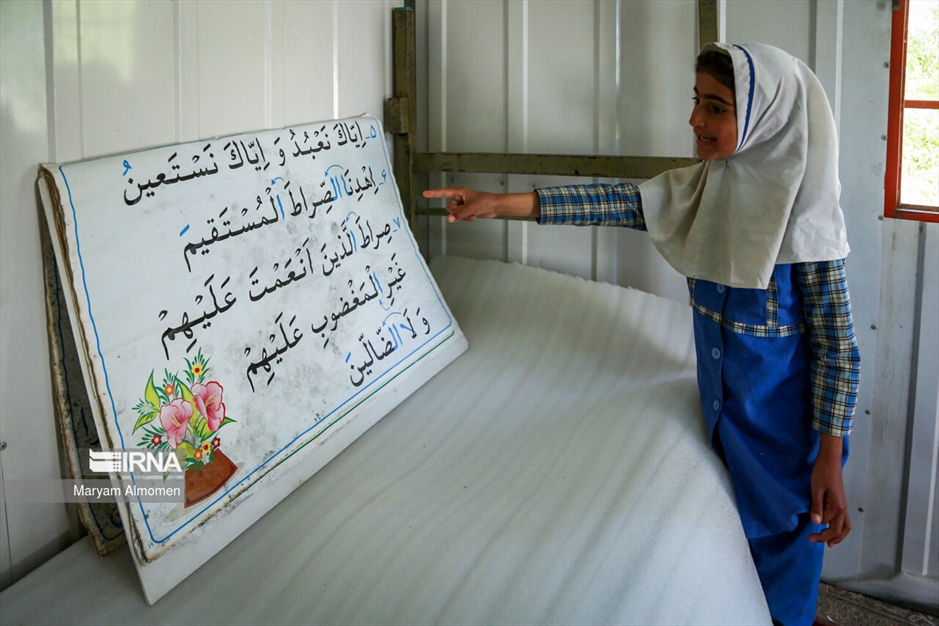 ۵_ اِیّاکَ نَعْبُدُ وَ اِیّاکَ نَسْتَعینُ
۶_ اِهْدِنَا الصِّراطَ الْمُسْتَقیمَ
۷_ صِراطَ الَّذینَ اَنْعَمْتَ عَلَیْهِمْ
غَیْرِ الْمَغْضوبِ عَلَیْهِمْ
وَ لَا الضّالّینَ
IRNA
Maryam Almomen